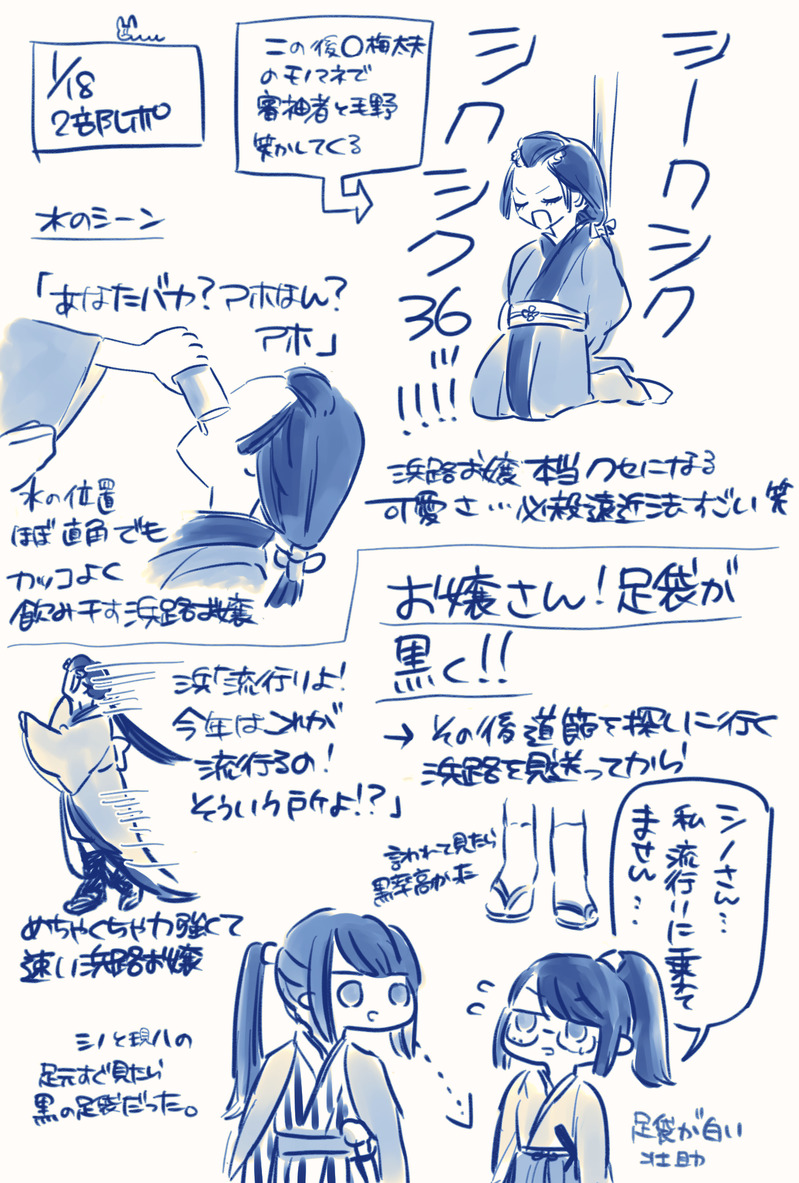 1/18
2部レポ
この後〇梅太夫
のモノマネで
審神者と毛野
笑かしてくる
シークシク
シクシク36
!!!
!!!!
水のシーン
「あなたバカ?アホなん?
アホ」
浜路お嬢本当クセになる
可愛さ…必殺遠近法すごい笑
水の位置
ほぼ直角でも
カッコよく
飲み干す浜路お嬢
お嬢さん!足袋が
黒く!!
→その後道節を探しに行く
浜路を見送ってから
浜「流行りよ!
今年はこれが
流行るの!
そういう所よ!?」
言われて見たら
黒率高か
シノさん…
私流行りに乗れて
ません…
めちゃくちゃ力強くて
速い浜路お嬢
シノと現八の
足元すぐ見たら
黒の足袋だった。
足袋が白い
壮助